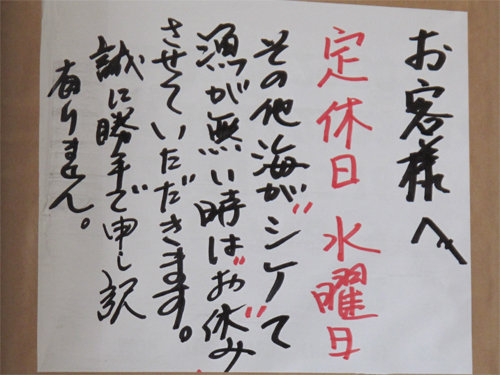 お客様へ
定休日 水曜日
その他海が"シケ"て
漁が無い時は"お休み"
させていただきます。
誠に勝手で申し訳
ありません。